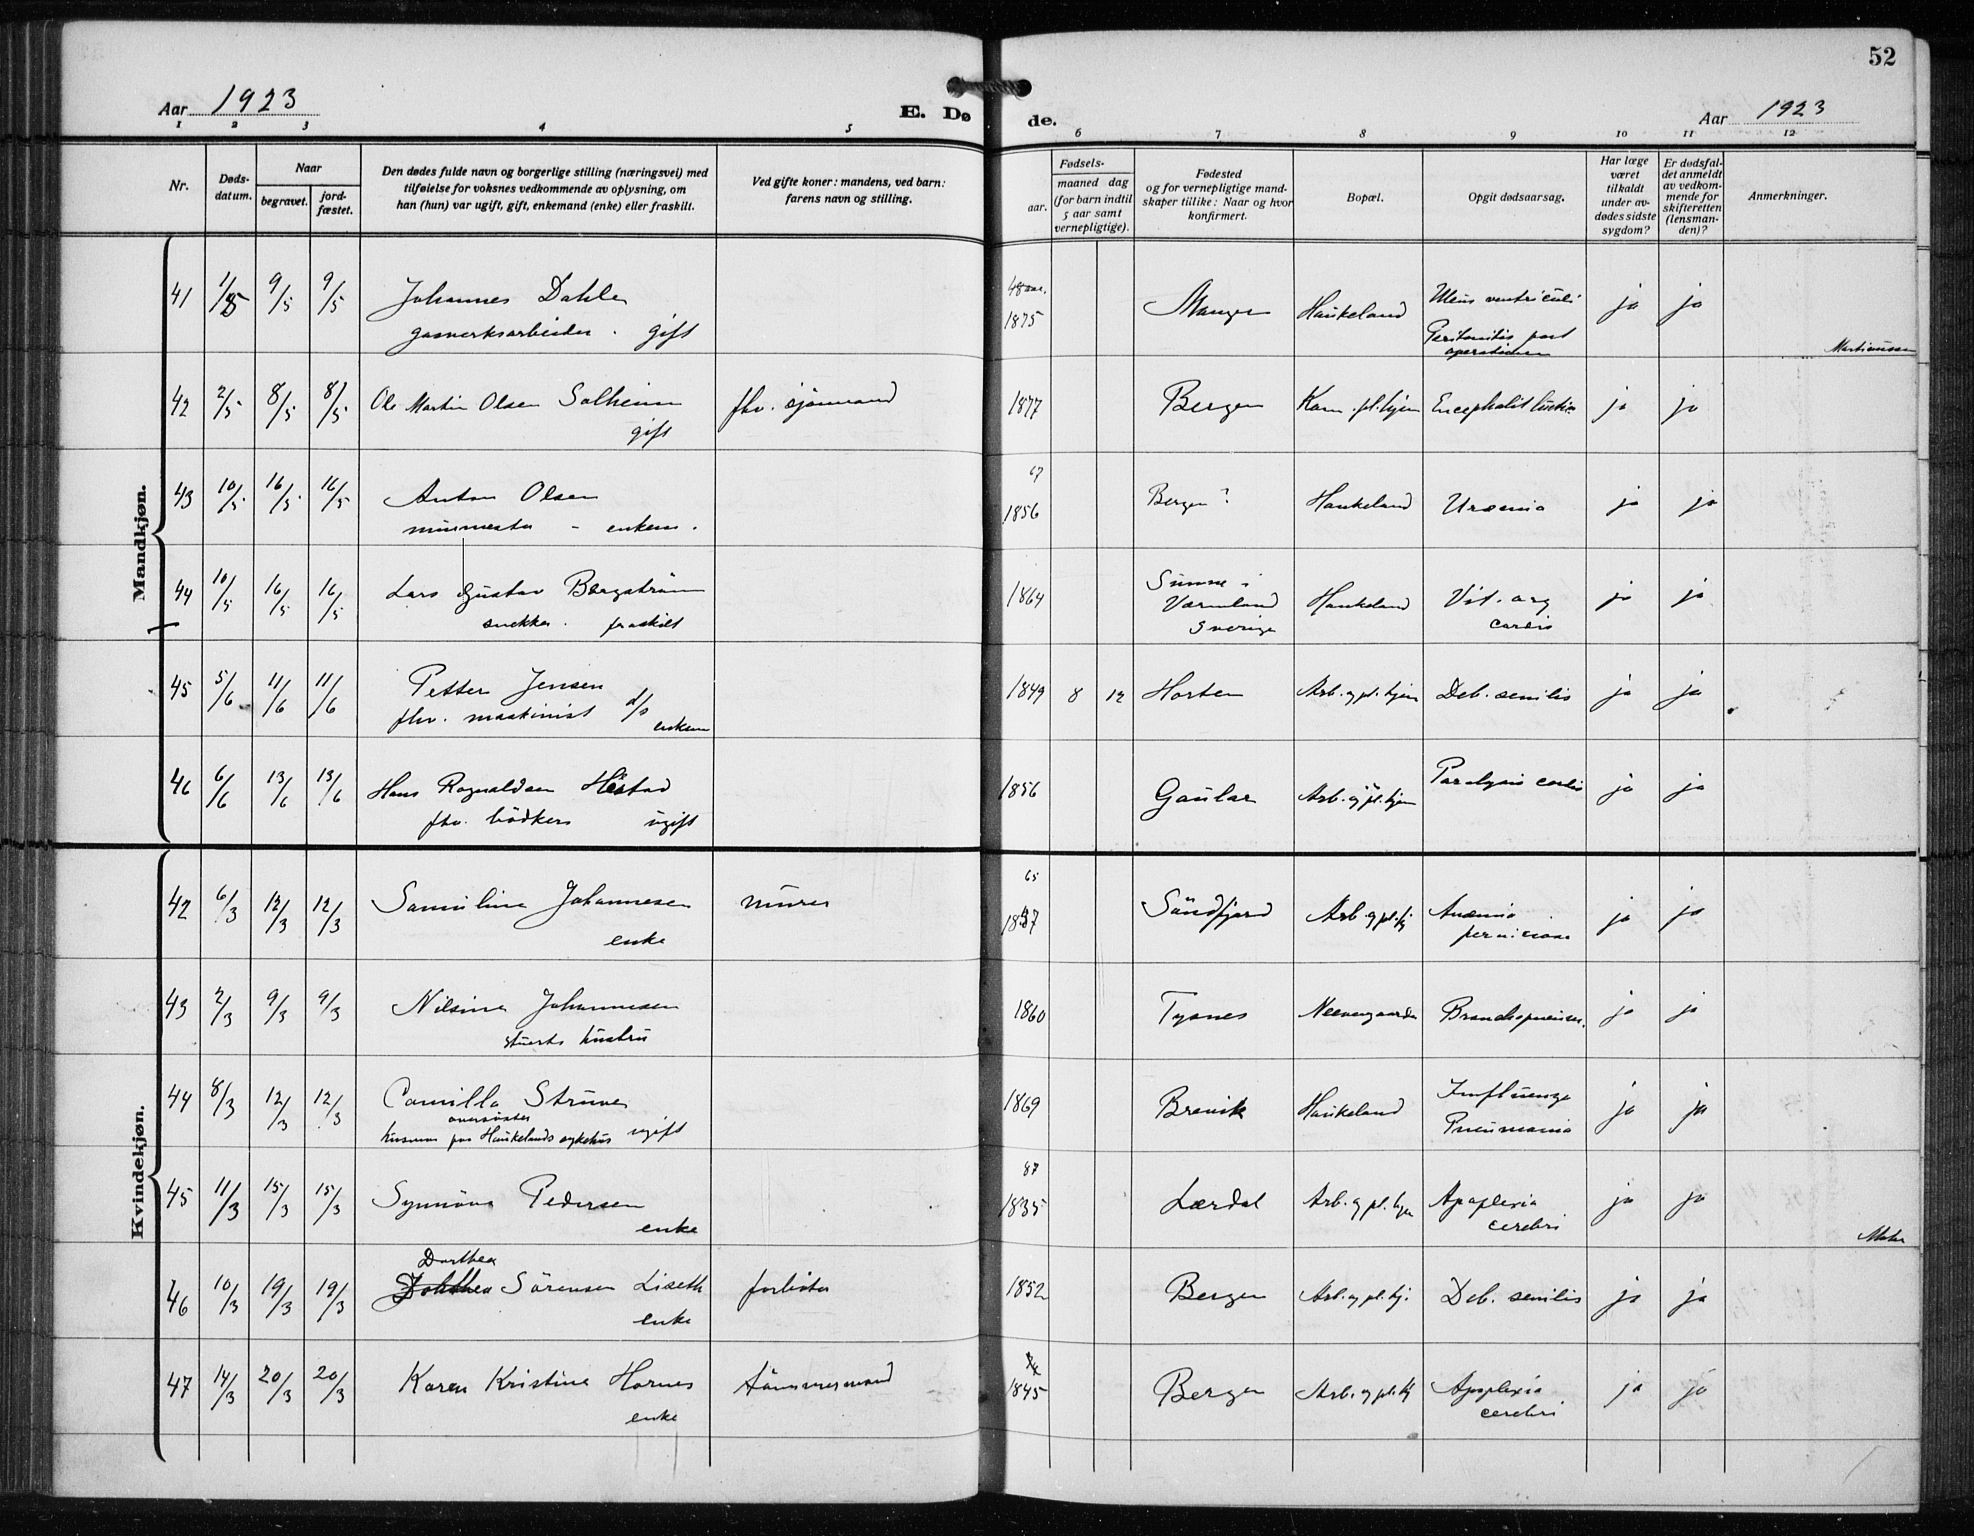 52
Aar 1923
E. Dø de.
Aar 1923
1 2 3 4 5 6 7 8 9 10 11 12
Nr.
Døds-
datum.
Naar
begravet.
jord-
fæstet.
Den dødes fulde navn og borgerlige stilling (næringsvei) med
tilføielse for voksnes vedkommende av oplysning, om
han (hun) var ugift, gift, enkemand (enke) eller fraskilt.
Ved gifte koner: mandens, ved barn:
farens navn og stilling.
Fødsels-
aar.
maaned dag
(for barn indtil
5 aar samt
vernepligtige).
Fødested
og for vernepligtige mand-
skaper tillike: Naar og hvor
konfirmert.
Bopæl.
Opgit dødsaarsag.
Har læge
været
tilkaldt
under av-
dødes sidste
sygdom?
Er dødsfal-
det anmeldt
av vedkom-
mende for
skifteretten
(lensman-
den)?
Anmerkninger.
Mandkjøn.
41 1/5 9/5 9/5 Johannes Dahle 48 aar. 1875 Manger Haukeland Ulcus ventriculi ja ja
gasverksarbeider. gift Peritonitis post
operationem
42 2/5 8/5 8/5 Ole Martin Olsen Solheim fhv. sjømand 1877 Bergen Kom. pl.hjem Encephalit ja ja
gift
43 10/5 16/5 16/5 Anton Olsen 67 1856 Bergen? Haukeland Uræmia ja ja
murmester - enkem.
44 10/5 16/5 16/5 Lars Gustav Bergström 1864 Sunne i Haukeland Vit. org ja ja
snekker. fraskilt Värmland cordis
Sverige
45 5/6 11/6 11/6 Petter Jensen 1849 8 12 Horten Arb. og pl.hjem Deb. senilis ja ja
fhv. maskinist d/s enkem
46 6/6 13/6 13/6 Hans Ragnaldsen Hestad 1856 Gaular Arb. og pl.hjem Paralysis cordis ja ja
fhv. bödker ugift
Kvindekjøn.
42 6/3 12/3 12/3 Samuline Johannesen murer 65 Søndfjord Arb. og pl.hj Anæmia ja ja
enke perniciosa
43 2/3 9/3 9/3 Nilsine Johannesen 1860 Tysnes Neevengaarden ja ja
stuerts hustru
44 8/3 12/3 12/3 Camilla Struve 1869 Brevik Haukeland Influenza ja ja
oversøster Pneumonia
paa Haukelands sykehus ugift
45 11/3 15/3 15/3 Synnöve Pedersen 87 1835 Lærdal Arb. og pl.hjem Apoplexia ja ja
enke cerebri
Dorthea
46 10/3 19/3 19/3 Sørensen Liseth forlister 1852 Bergen Arb. og pl.hj. Deb. senilis ja ja
enke
47 14/3 20/3 20/3 Karen Kristine Hornes tømmermand 1845 Bergen Arb. og pl.hj Apoplexia ja ja
enke cerebri